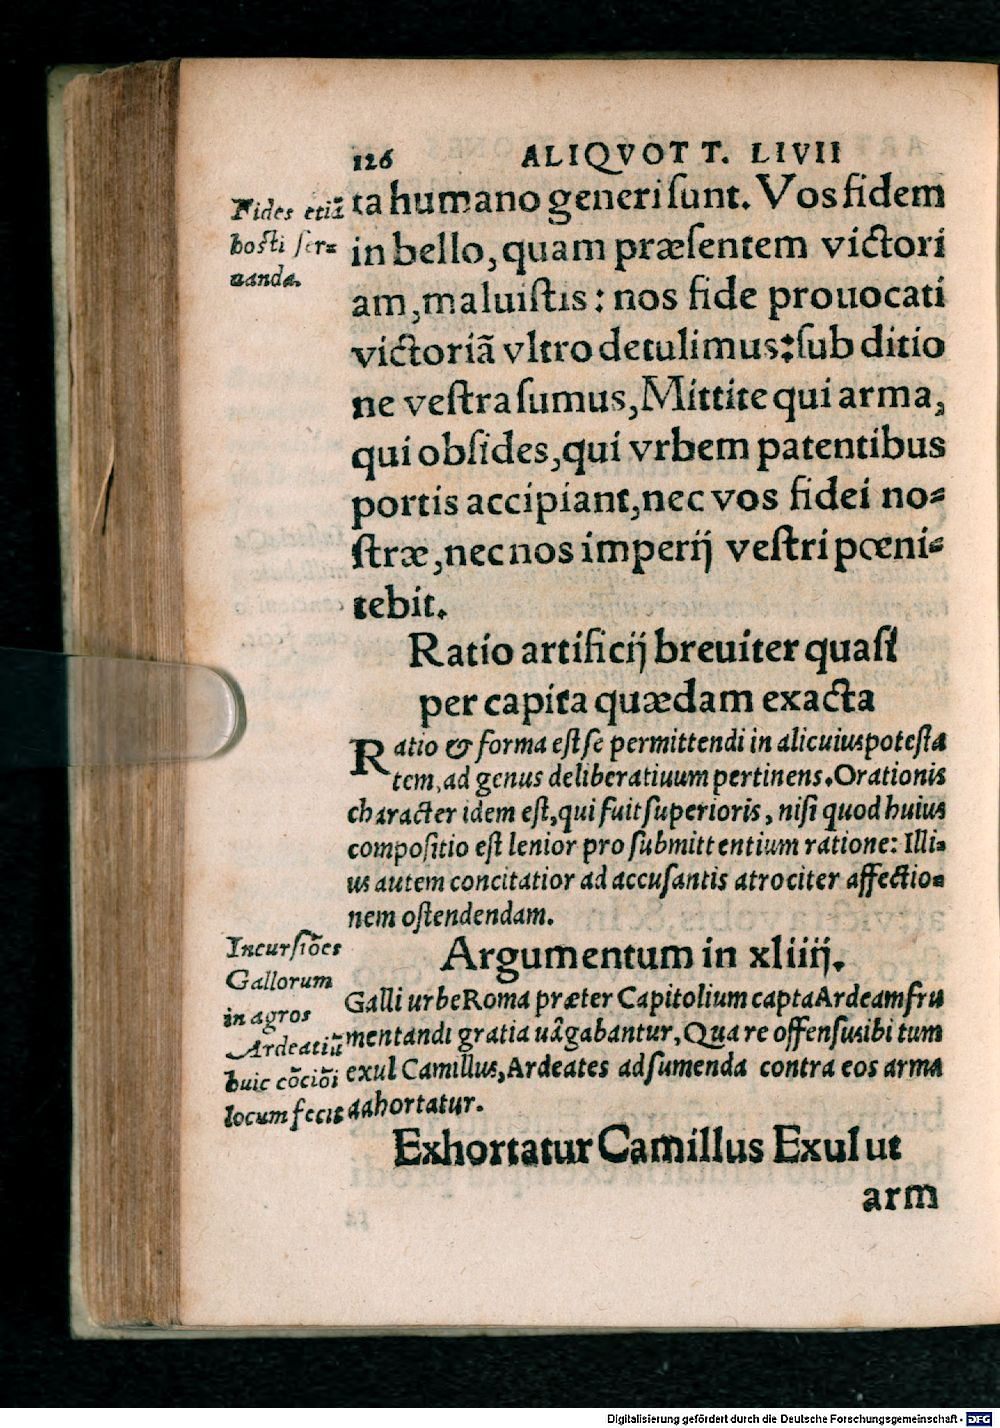 126 ALIQVOT T. LIVII
Fides etiã
hosti ser=
uanda.
ta humano generi ſunt. Vos fidem
in bello, quam præſentem victori
am, maluiſtis: nos fide prouocati
victoriã vltro detulimus: ſub ditio
ne veſtra ſumus, Mittite qui arma,
qui obſides, qui vrbem patentibus
portis accipiant, nec vos fidei no=
ſtræ, nec nos imperij veſtri pœni=
tebit.
Ratio artificij breuiter quaſi
per capita quædam exacta
Ratio & forma eſt ſe permittendi in alicuius poteſta
tem, ad genus deliberatiuum pertinens. Orationis
character idem eſt, qui fuit ſuperioris, niſi quod huius
compoſitio eſt lenior pro ſubmittentium ratione: Illi=
us autem concitatior ad accuſantis atrociter affectio=
nem oſtendendam.
Incurſiões
Gallorum
in agros
Ardeatiũ
huic cõciõi
locum fecit
Argumentum in xliiij.
Galli urbe Roma præter Capitolium capta Ardeam fru
mentandi gratia uâgabantur, Qua re offenſus ibi tum
exul Camillus, Ardeates adſumenda contra eos arma
adhortatur.
Exhortatur Camillus Exul ut
arm
Digitalisierung gefördert durch die Deutsche Forschungsgemeinschaft - DFG